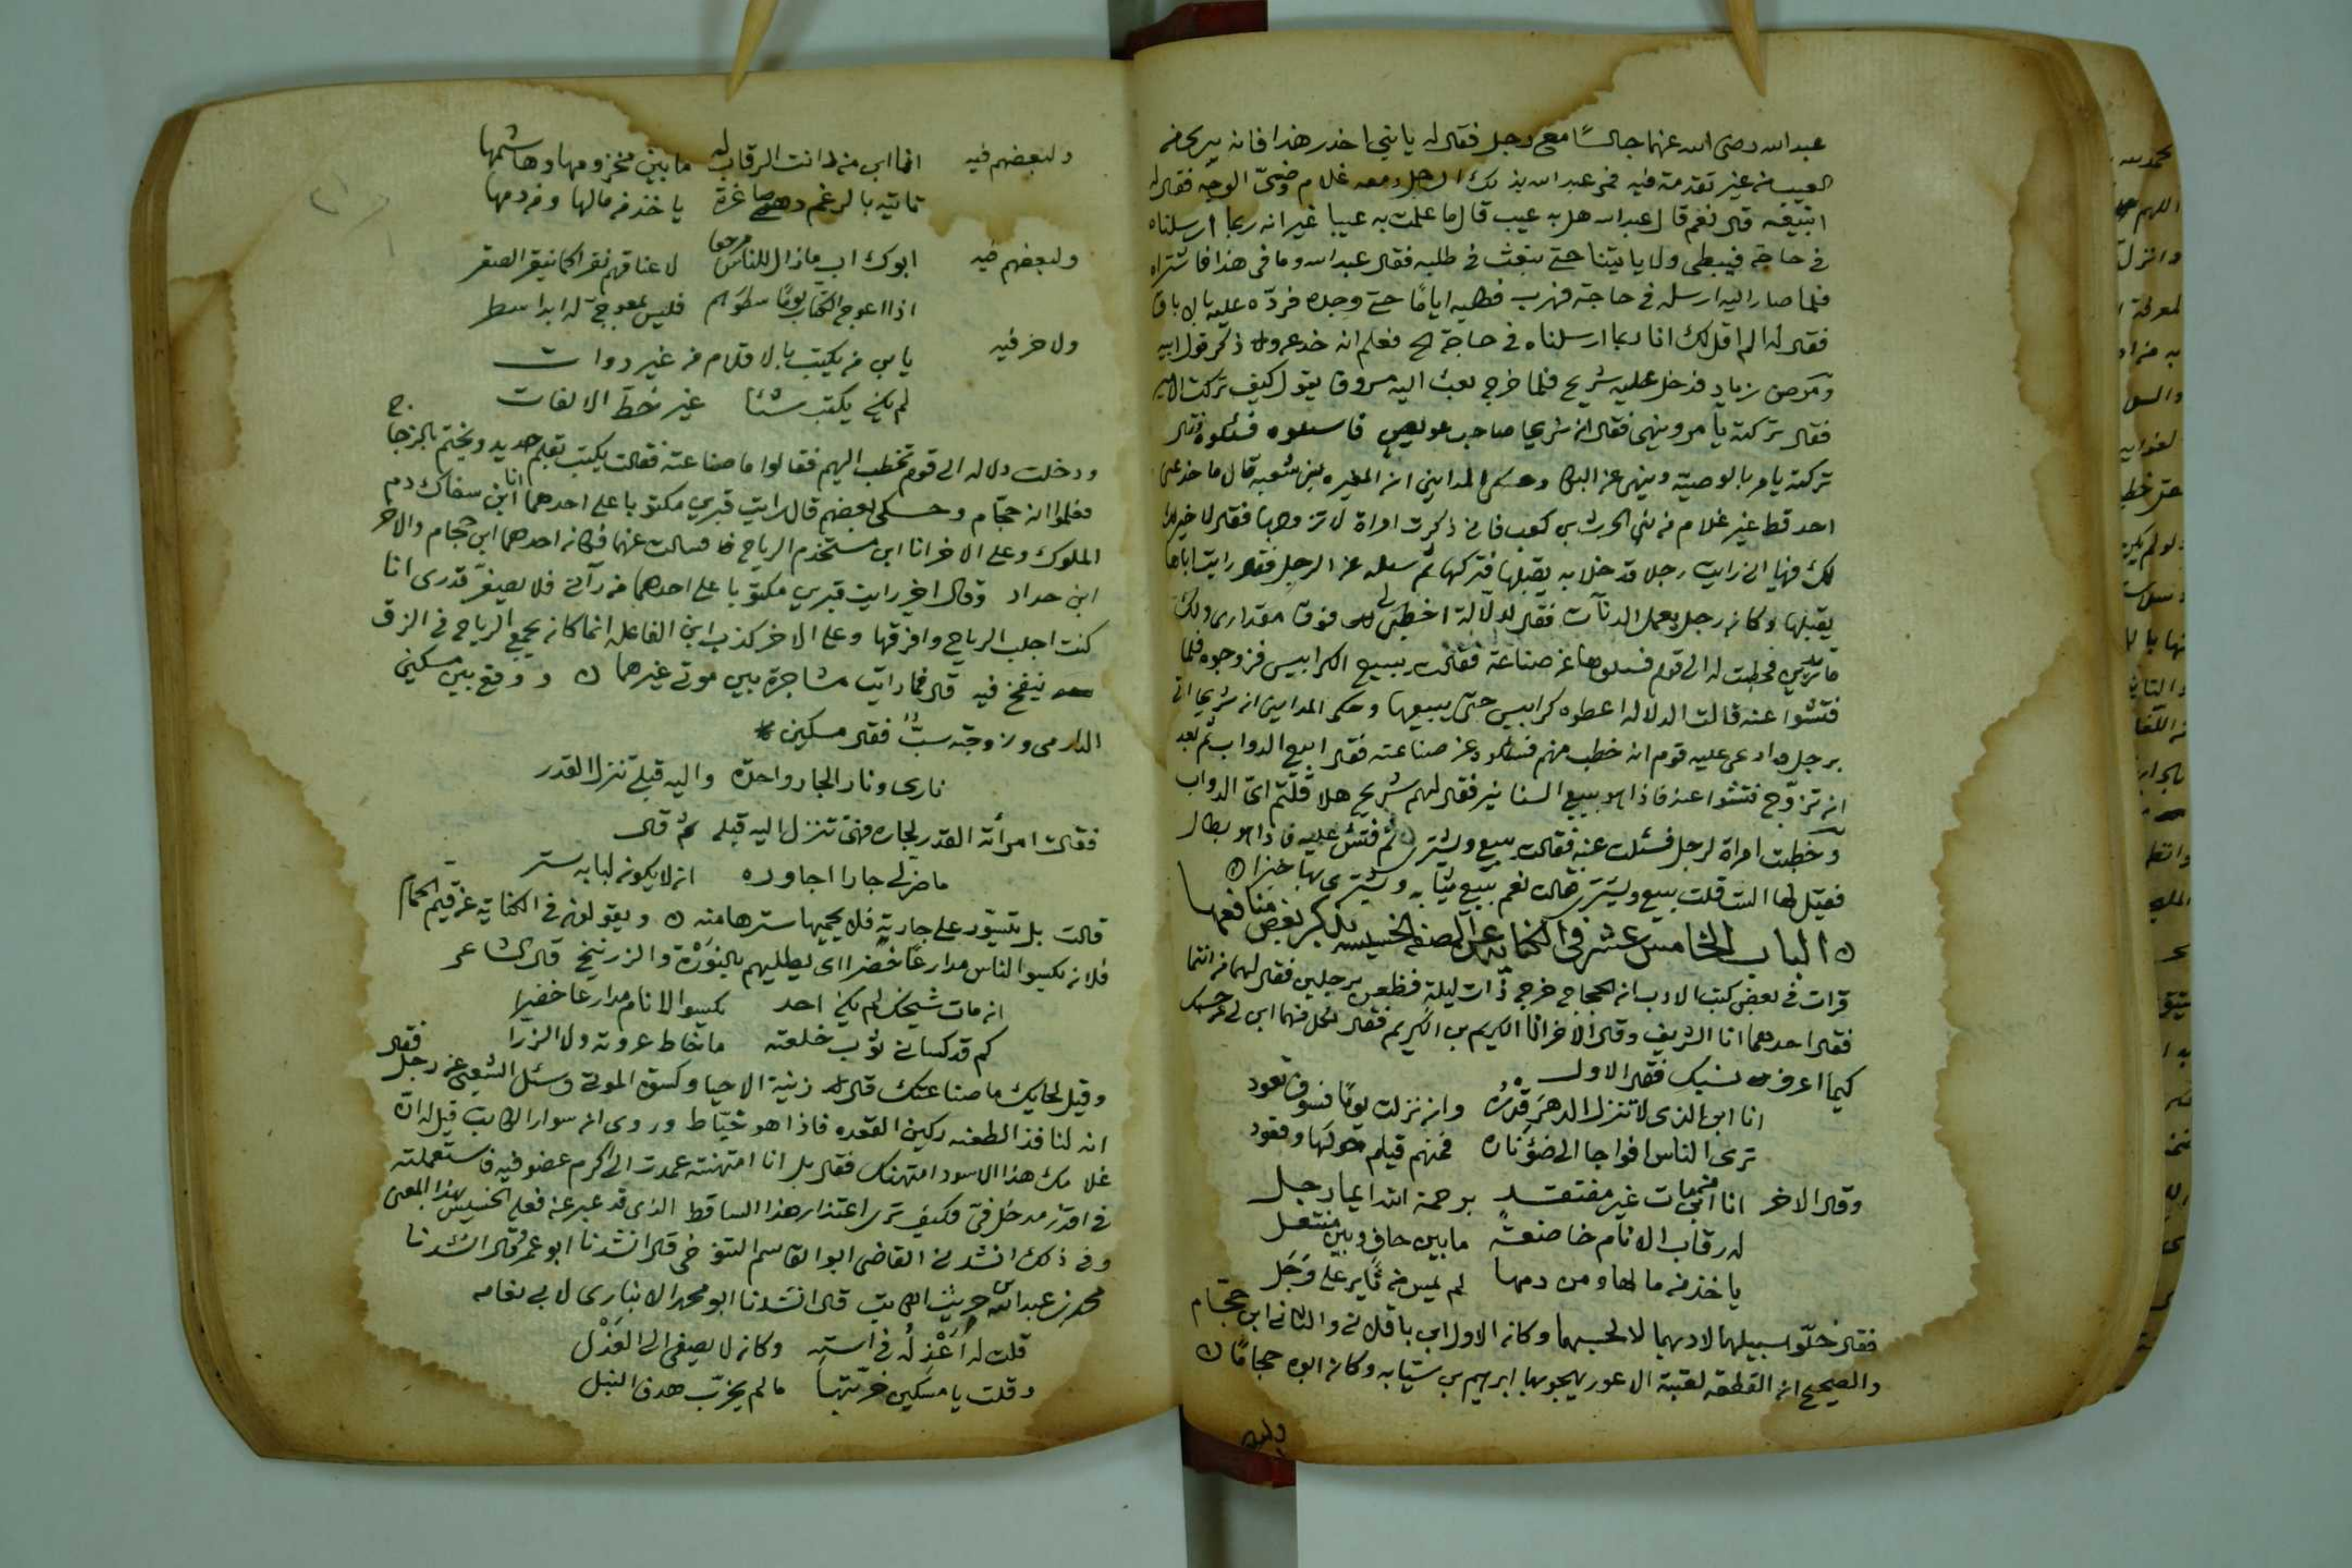 عبد الله رضى الله عنهما جالسًا مع رجل فقال له يا بني احذر هذا فانه يريك
العيب من غير تقدمة فيه فمر عبد الله بذلك الرجل ومعه غلام وضئ الوجه فقال له
اتبيعه قال نعم قال عبد الله هل به عيب قال ما علمت به عيبا غير انه ربما ارسلناه
في حاجة فيبطى ولا ياتينا حتى نبعث في طلبه فقال عبد الله وما في هذا فاشتراه
فلما صار اليه ارسله في حاجة فهرب فطلبه ايامًا حتى وجده فردّه عليه بالاباق
فقال له الم اقل لك انا ربما ارسلناه في حاجة فعلم انه خدعه وذكر قول ابيه
ومرض زياد فدخل عليه شريح فلما خرج بعث اليه مسروق يقول كيف تركت الامير
فقال تركته يأمر وينهى فقال ان شريحا صاحب عويص فاسئلوه فسئلوه فقال
تركته يامر بالوصية وينهى عن البكا وحكى المدايني ان المغيره بن شعبه قال ما خدعني
احد قط غير غلام من بني الحرث بن كعب فاني ذكرت امراة لاتزوجها فقال لا خير
لك فيها اني رايت رجلا قد خلا بها يقبلها فتركها ثم سئله عن الرجل فقال رايت اباها
يقبلها وكان رجل يعمل الدنآت فقال لدلّالة اخطبى لي فوق مقدارى ولك
فخطبت له الى قوم فسئلوها عن صناعته فقالت يبيع الكرابيس فزوجوه فلما
فتشوا عنه قالت الدلاله اعطوه كرابيس حتى يبيعها وحكى المدايني ان شريحا اتى
برجل وادعى عليه قوم انه خطب منهم فسئلوه عن صناعته فقال ابيع الدواب ثم بعد
ان تزوّج فتشوا عنه فاذا هو يبيع السنانير فقال لهم شريح هلا قلتم اي الدواب
وخطبت امراة لرجل فسئلت عنه فقالت يبيع ويشترى ثم فتش عليه فاذا هو بطال
فقيل لها الست قلت يبيع ويشترى قالت نعم يبيع ثيابه ويشترى بها خبزا
الباب الخامس عشر في الكنايه عن الصنعه الخسيسه بذكر بعض منافعها
قرات في بعض كتب الادب ان الحجاج خرج ذات ليلة فظفر برجلين فقال لهما من انتما
فقال احدهما انا الشريف وقال الاخر انا الكريم بن الكريم فقال لكل منهما ابن لي عن حسبك
كيما اعرف نسبك فقال الاول
انا ابن الذى لا تنزل الدهر قدره وان نزلت يومًا فسوف تعود
ترى الناس افواجا الى ضؤ ناره فمنهم قيام حولها وقعود
وقال الاخر انا ابن من مات غير مفتقد برحمة الله ايما رجل
له رقاب الانام خاضعة ما بين حافٍ وبين منتعل
ياخذ من مالها ومن دمها لم يمس من ثاير على وَجَل
فقال خلّوا سبيلهما لادبهما لا لحسبهما وكان الاول ابن باقلاني والثاني ابن حجّام
والصحيح ان القطعه لعتبة الاعور يهجو بها ابرهيم بن سيابه وكان ابوه حجامًا
ولبعضهم فيه انما ابن من دانت الرقاب له ما بين مخزومها وهاشمها
تاتيه بالرغم وهي صاغرة ياخذ من مالها ومن دمها
ولبعضهم فيه ابوك اب ما زال للناس موجعا لاعناقهم نقرا كما ينقر الصقر
اذا اعوج الكتاب يومًا سطورهم فليس بمعوج له ابدا سطر
ولاخر فيه يا بن من يكتب بالاقلام من غير دوات
لم يكن يكتب شئا غير خط الالفات
ودخلت دلاله الى قوم تخطب اليهم فقالوا ما صناعته فقالت يكتب بقلم حديد ويختم بالزجاج
فعلموا انه حجّام وحكى بعضهم قال رايت قبرين مكتوبا على احدهما انا ابن سفاك دم
الملوك وعلى الاخر انا ابن مستخدم الرياح فسالت عنهما فكان احدهما ابن حجام والاخر
ابن حداد وقال اخر رايت قبرين مكتوبا على احدهما من رآنى فلا يصغر قدرى انا
كنت اجلب الرياح وافرقها وعلى الاخر كذب ابن الفاعله انما كان يجمع الرياح في الزق
ينفخ فيه قال فما رايت مشاجرة بين موتى غيرهما ووقع بين مسكين
الدارمى وزوجته سبٌّ فقال مسكين
نارى ونار الجار واحدة واليه قبلى تنزل القدر
فقالت امرأته القدر لجاره فهى تنزل اليه قبله ثم قال
ما ضر لي جارا اجاوره ان لا يكون لبابه ستر
قالت بل تتسور على جارية فلا يحميها سترها منه ويقولون في الكناية عن قيم الحمام
فلان يكسو الناس مدارعًا خضرا اى يطليهم بالنوْرة والزرنيخ قال الشاعر
ان مات شيخك لم يكن احد يكسو الانام مدارعا خضرا
كم قد كساني ثوب خلعته ما خاط عروته ولا الزرا
وقيل لحايك ما صناعتك قال زينة الاحيا وكسوة الموتى وسئل الشعبى عن رجل فقال
انه لنافذ الطعنه ركين القعده فاذا هو خيّاط وروى ان سوار الكاتب قيل له ان
غلامك هذا الاسود امتهنك فقال بل انا امتهنته عمدت الى اكرم عضو فيه فاستعملته
في اقذر مدخل فىّ فكيف ترى اعتذار هذا الساقط الذى قد عبر عن فعله الخسيس بهذا المعنى
وفي ذلك انشدني القاضى ابو القاسم التنوخى قال انشدنا ابو عمر وقال انشدنا
محمد بن عبد الله بن حريث الكاتب قال انشدنا ابو محمد الانبارى لابي نعامه
قلت له اَعْذِلُه في استه وكان لا يصغى الى العَذْل
وقلت يا مسكين خربتها ما لم يخرّب هدف النبل